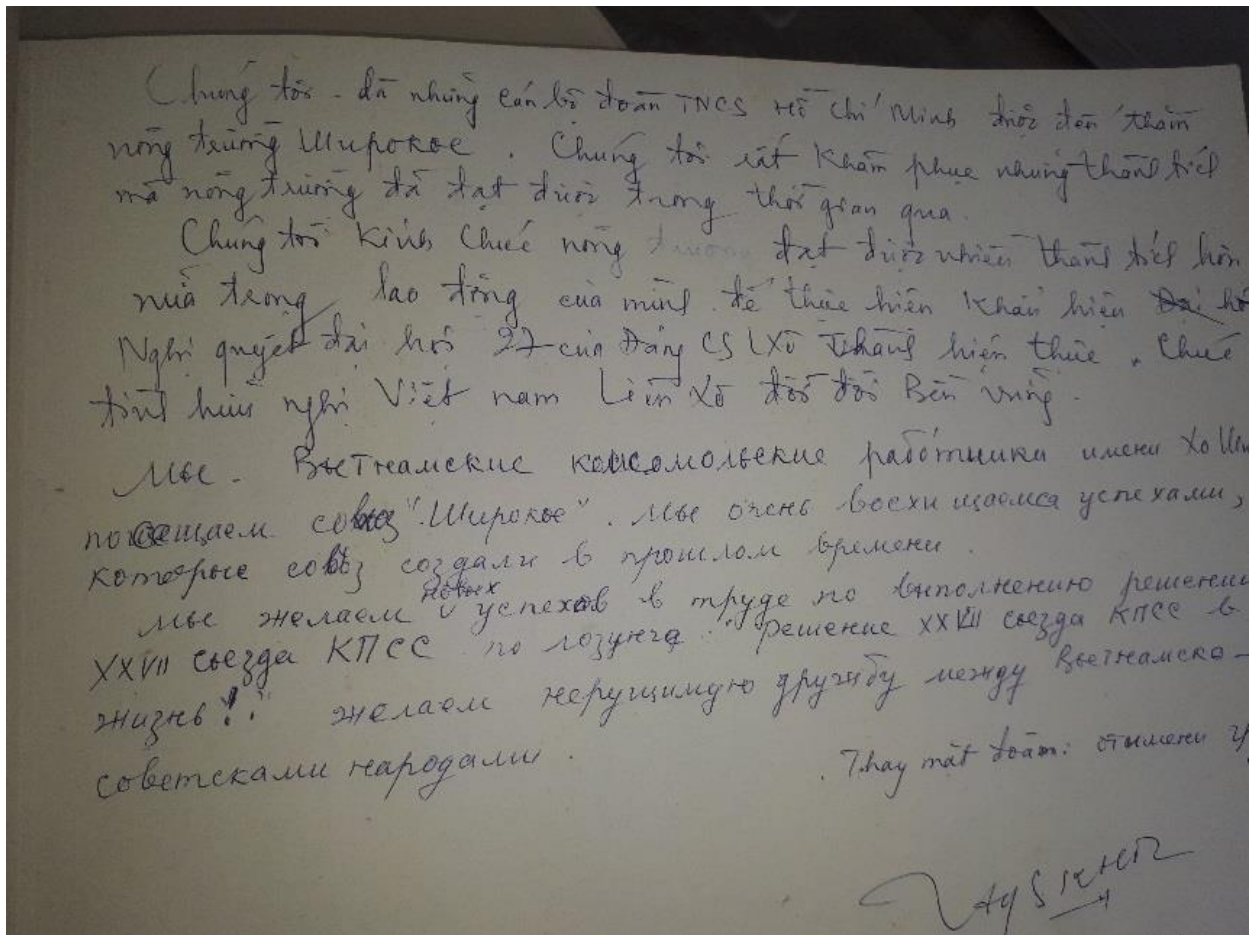 Chúng tôi - đã những cán bộ đoàn TNCS Hồ Chí Minh được đến thăm
nông trường Широкое. Chúng tôi rất Khâm phục những thành tích
mà nông trường đã đạt được trong thời gian qua.
Chúng tôi Kính Chúc nông trường đạt được nhiều thành tích hơn
nữa trong lao động của mình để thực hiện Khẩu hiệu
Nghị quyết đại hội 27 của Đảng CS LXô Thành hiện thực. Chúc
tình hữu nghị Việt nam Liên Xô đời đời Bền vững.
Мы - Вьетнамские комсомольские работники имени Хо
посещаем совхоз "Широкое". Мы очень восхищаемся успехами,
которые совхоз создали в прошлом времени.
Мы желаем новых успехов в труде по выполнению решении
XXVII съезда КПСС по лозунга: "решение XXVII съезда КПСС в
жизнь!" желаем нерущимую дружбу между Вьетнамско-
советсками народами.
Thay mặt đoàn: от имени